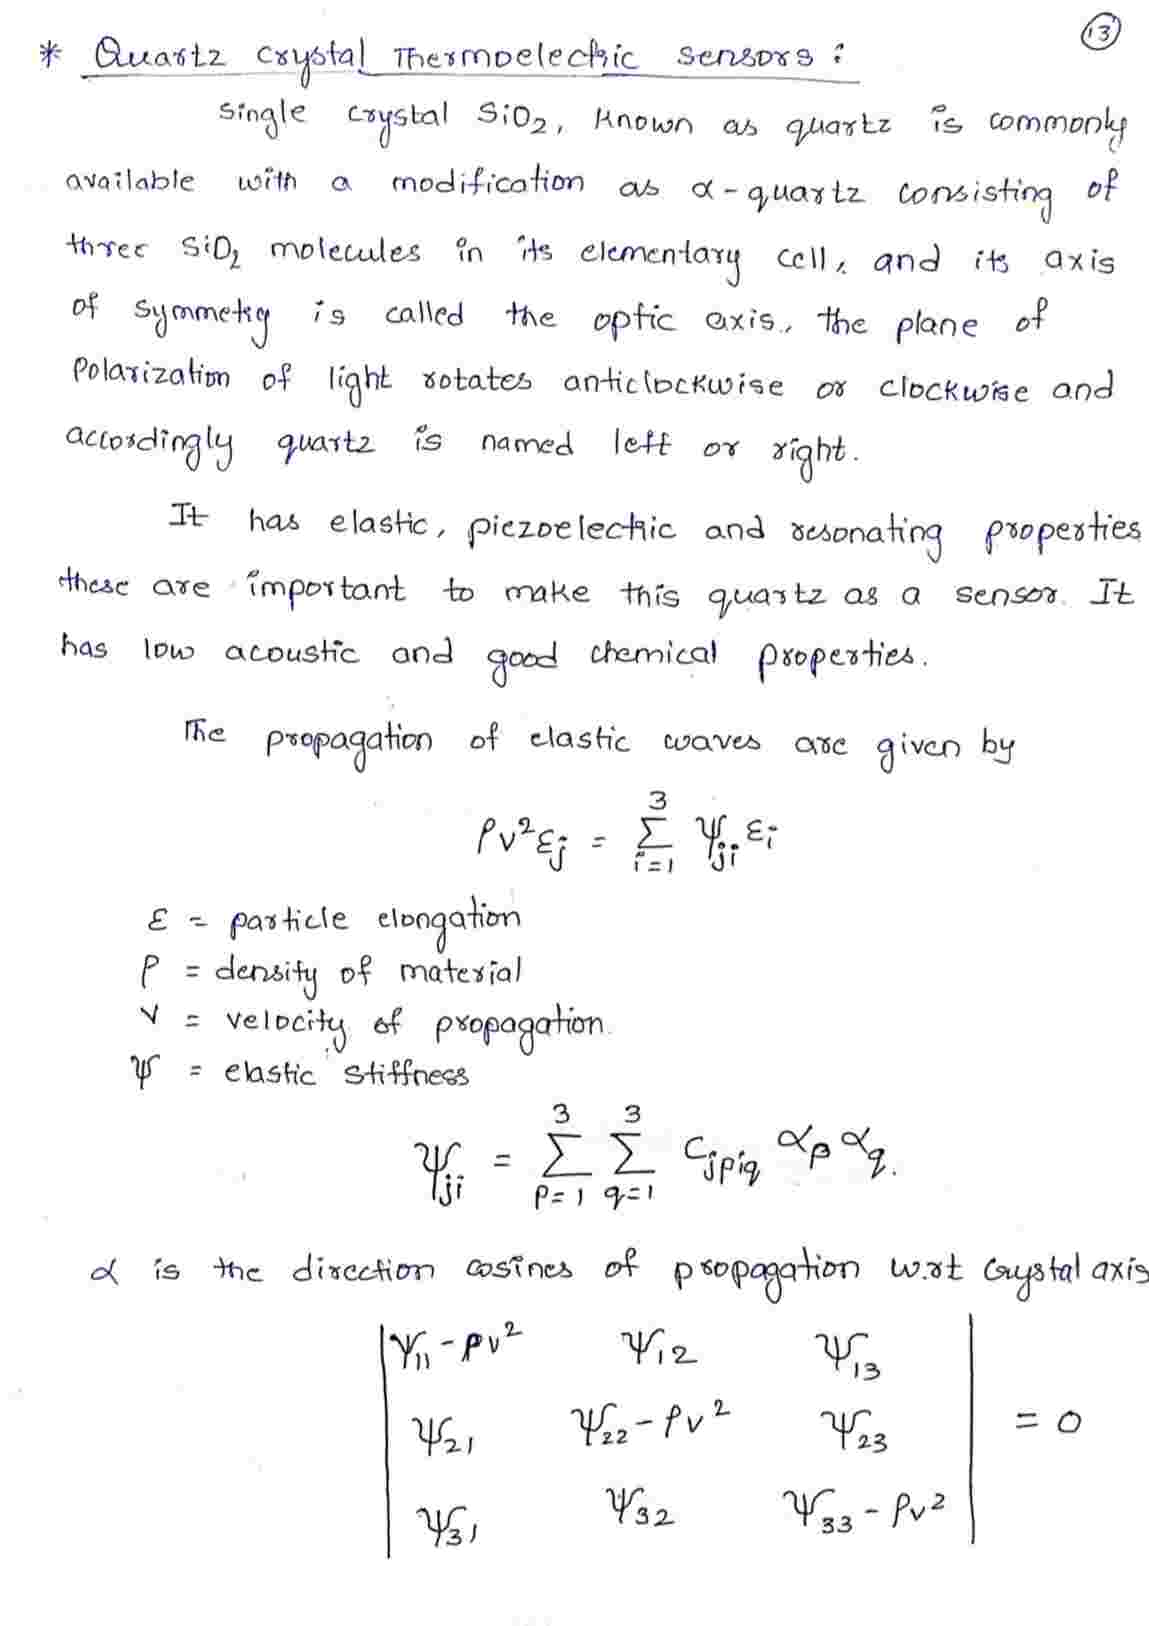 13
* Quartz crystal Thermoelectric sensors :
single crystal SiO2, known as quartz is commonly
available with a modification as α-quartz consisting of
three SiO2 molecules in its elementary cell, and its axis
of symmetry is called the optic axis., the plane of
Polarization of light rotates anticlockwise or clockwise and
accordingly quartz is named left or right.
It has elastic, piezoelectric and resonating properties
these are important to make this quartz as a sensor. It
has low acoustic and good chemical properties.
The propagation of elastic waves are given by
ρv²εj = Σ(i=1 to 3) ψji εi
ε = particle elongation
ρ = density of material
v = velocity of propagation.
ψ = elastic stiffness
ψji = Σ(p=1 to 3) Σ(q=1 to 3) Cjpiq αp αq.
α is the direction cosines of propagation w.rt crystal axis
| ψ11 - ρv² ψ12 ψ13 |
| ψ21 ψ22 - ρv² ψ23 | = 0
| ψ31 ψ32 ψ33 - ρv² |